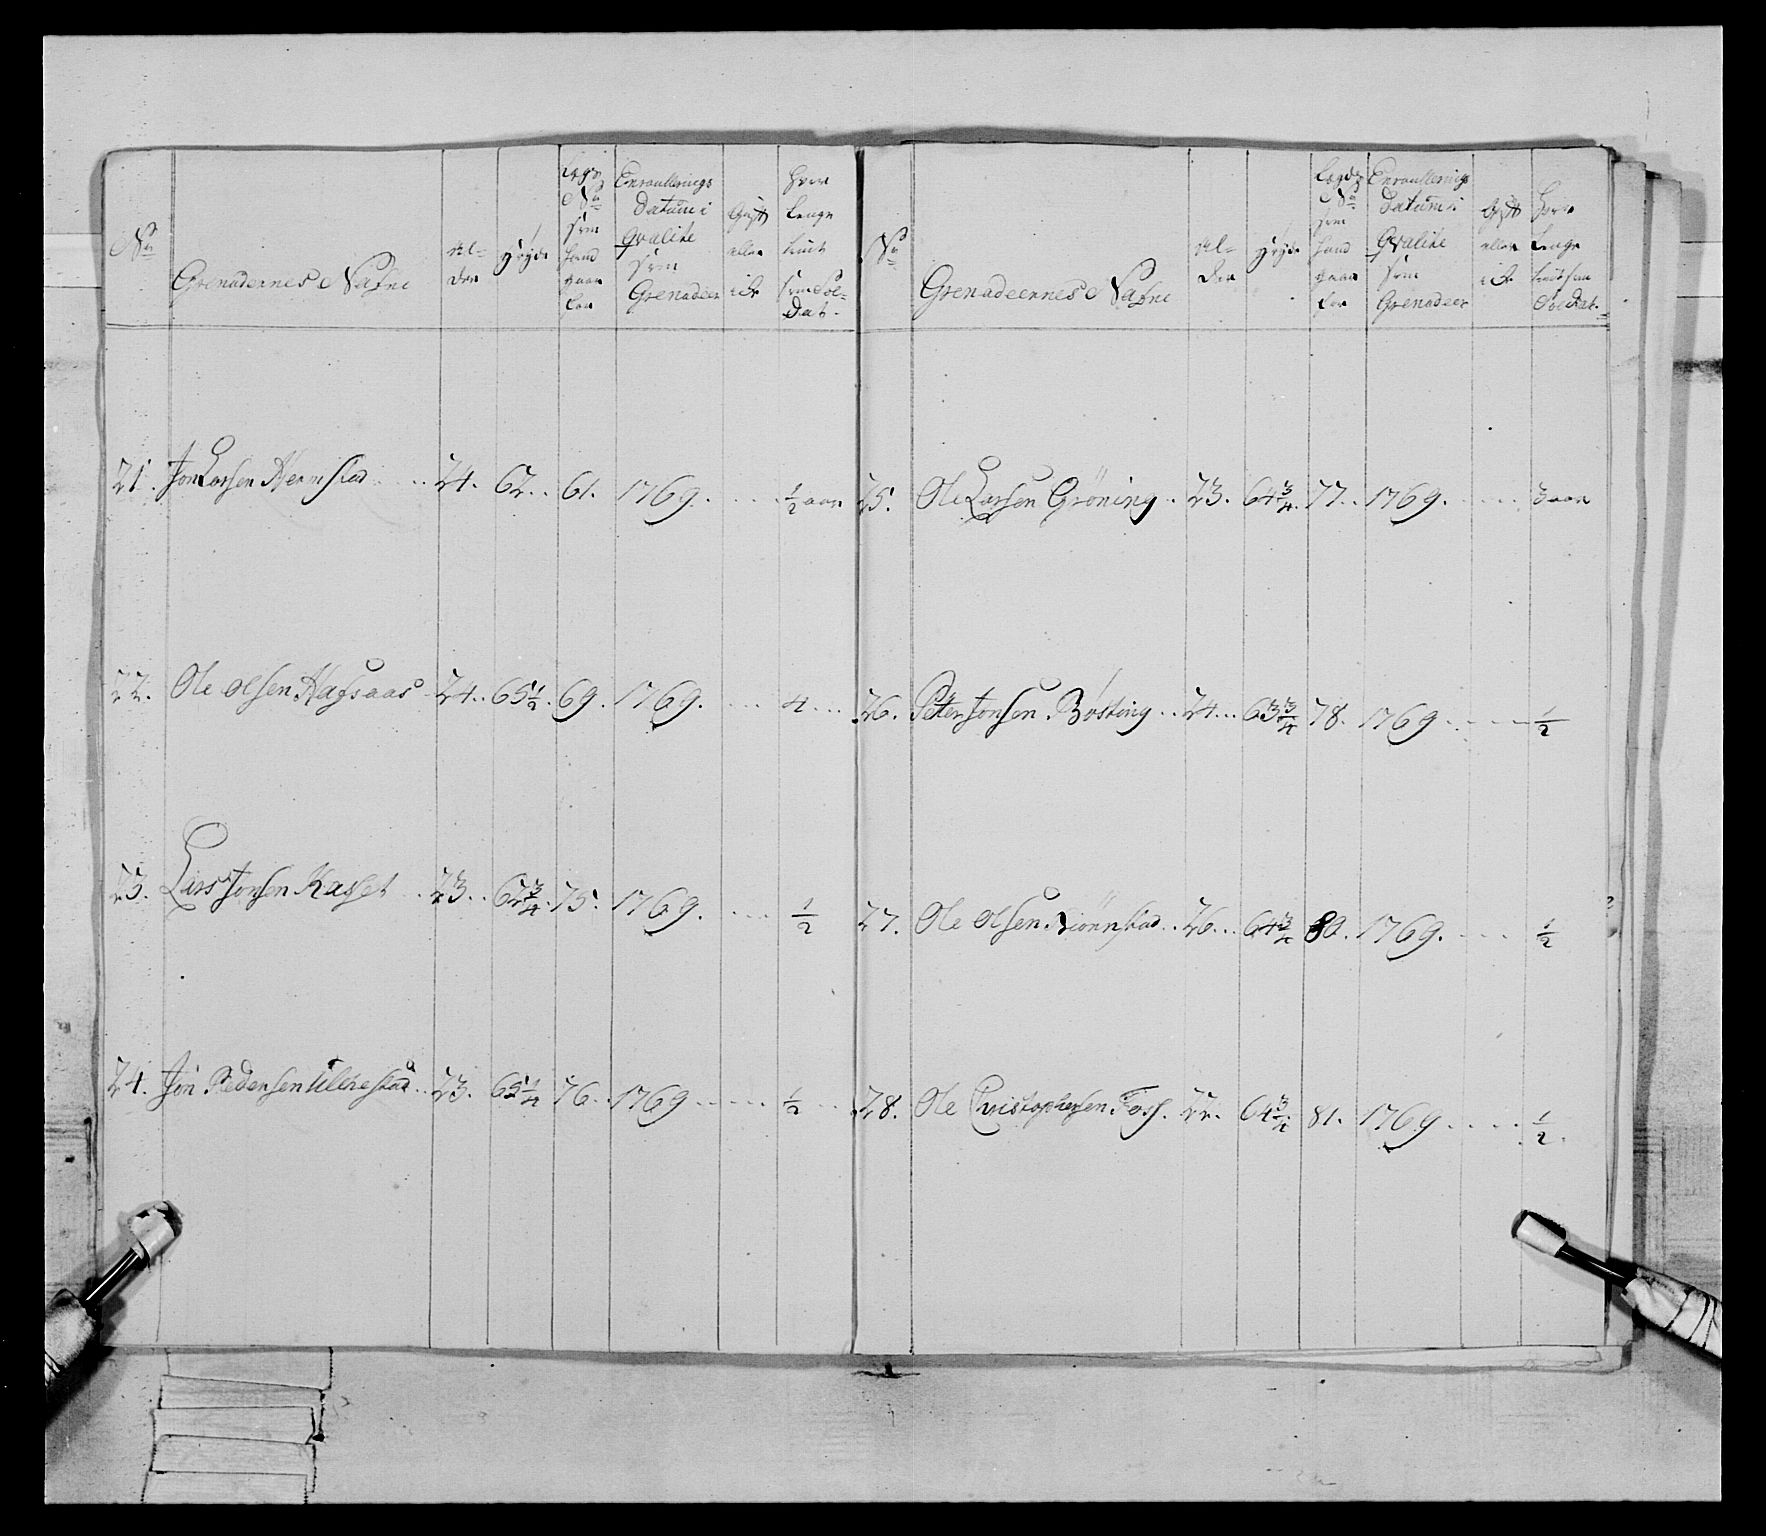 No
Grenadernes Nafne
Al=
der
Høyde
Legdz
No
som
hand
gaar
for
Enroullerings
Datum i
Qvalite
som
Grenadeer
Gift
eller
ickе
Hvor
Lenge
tient
som Sol=
dat.
21. Jon Larsen Hermstad 24. 62. 61. 1769. 1/2 aar
22. Ole Olsen Hafsaas 24. 65 1/2. 69. 1769. 4
23. Lars Jonsen Kasset 23. 62 3/4. 75. 1769. 1/2
24. Jon Pedersen 23. 65 1/4 76. 1769 1/2
No
Grenadeernes Nafne
Al=
der
Høyde
Legdz
No
som
hand
gaar
for
Enroullerings
Datum i
Qvalite
som
Grenadeer
Gift
eller
icke
Hvor
Lenge
tient som
Soldat.
25. Ole Larsen Gröning 23. 64 3/4. 77. 1769. 3 aar
26. Peter Jonsen Bösting 24. 63 3/4 78. 1769 1/2
27. Ole Olsen 26. 64 3/4 80. 1769. 1/2
28. Ole Christophersen Foss. 22. 64 3/4 81. 1769 1/2.